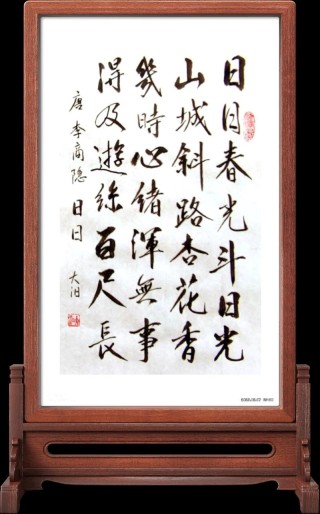 日日春光斗日光
山城斜路杏花香
幾時心绪渾無事
得及遊絲百尺長
唐 李商隐 日日